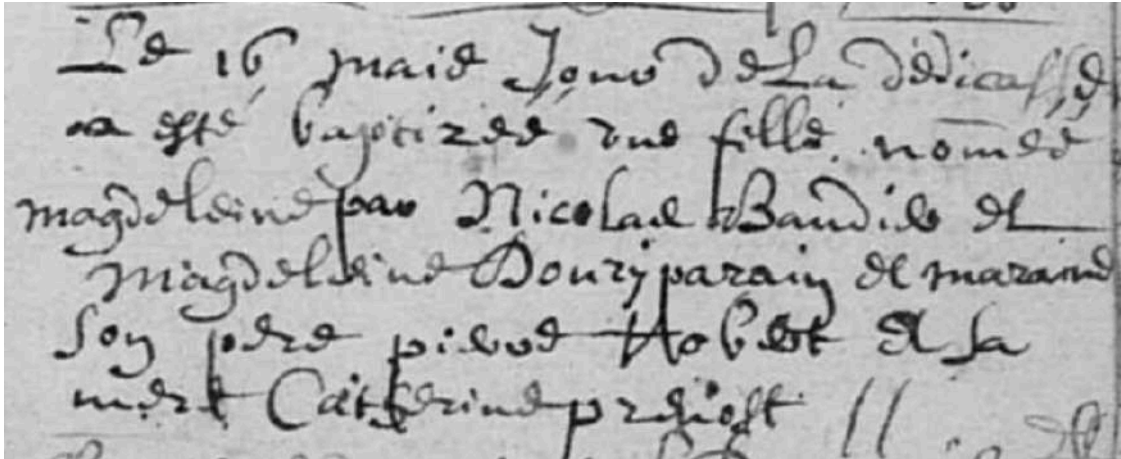 Le 16 maie Jour de La dedicasse
a esté baptizee une fille nomee
magdeleine par Nicolae Baudie et
Magdeleine Doury parain et maraine
son pere pierre Hobert et sa
mere Catherine prevost //